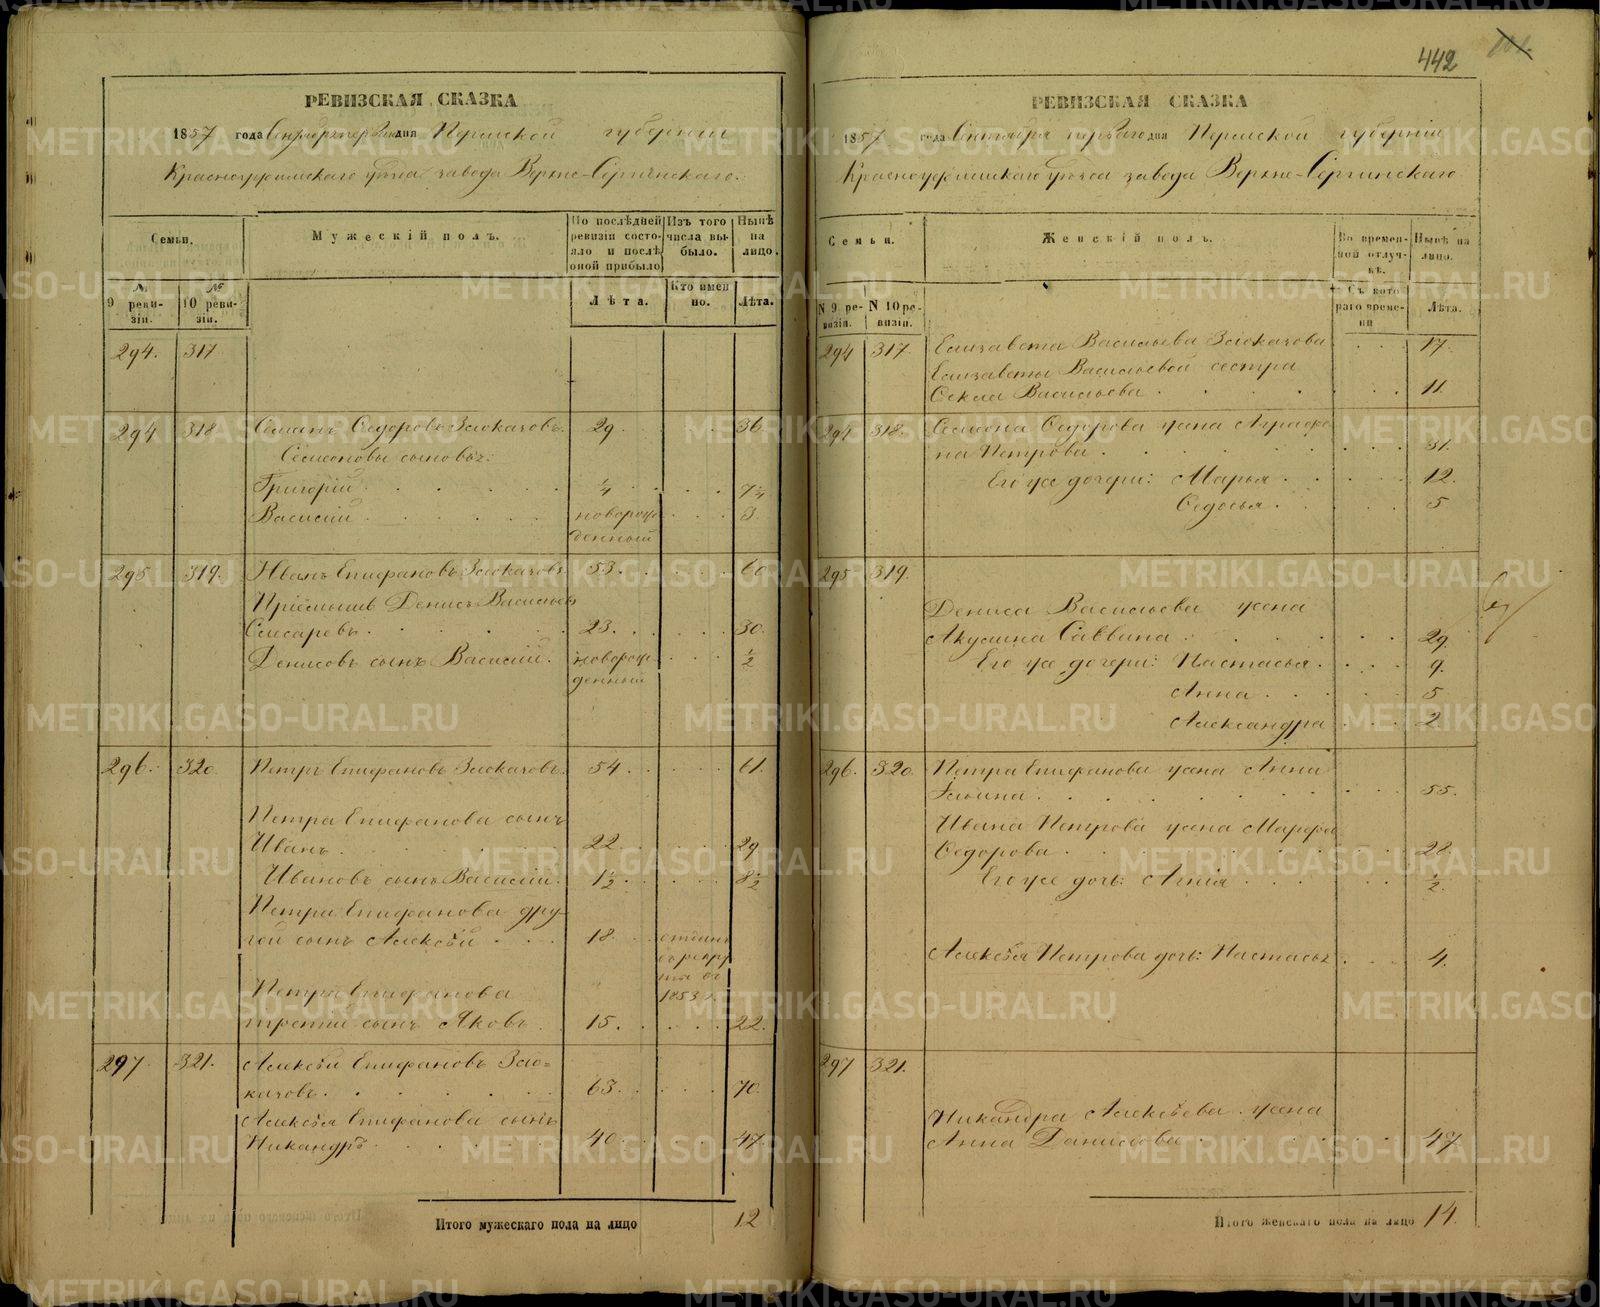 442
РЕВИЗСКАЯ СКАЗКА
1857 года Сентября первого дня Пермской губерніи
Красноуфимскаго уѣзда завода Верхне-Сергинскаго.
Семьи.
Мужескій полъ.
По послѣдней ревизіи состояло и послѣ оной прибыло
Изъ того числа выбыло.
Нынѣ на лицо.
№ 9 ревизіи.
№ 10 ревизіи.
Лѣта.
Кто именно.
Лѣта.
294. 317
294 318 Семенъ Ѳедоровъ Злоказовъ. 29 36
Семеновы сыновья:
Григорій 1/4 7 1/4
Василій новорож- 3
денный
295 319. Иванъ Епифановъ Злоказовъ 53. 60
Пріемышъ Денисъ Васильевъ
Слесаревъ 23. 30.
Денисовъ сынъ Василій. новорож- 1/2
денный
296. 320. Петръ Епифановъ Злоказовъ. 54. 61.
Петра Епифанова сынъ
Иванъ. 22. 29
Ивановъ сынъ Василій. 1 1/2 8 1/2
Петра Епифанова дру-
гой сынъ Алексѣй 18. отданъ
въ рекру
ты въ
Петра Епифанова 1853 г.
третій сынъ Яковъ 15. 22.
297. 321. Алексѣй Епифановъ Зло-
казовъ. 63. 70.
Алексѣя Епифанова сынъ
Никандръ 40. 47.
Итого мужескаго пола на лицо 12
РЕВИЗСКАЯ СКАЗКА
1857 года Сентября перваго дня Пермской губерніи
Красноуфимскаго уѣзда завода Верхне-Сергинскаго
Семьи.
Женскій полъ.
Во временной отлучкѣ.
Нынѣ на лицо.
N 9 ревизіи.
N 10 ревизіи.
Съ котораго времени
Лѣта.
294 317. Елизавета Васильева Злоказова 17.
Елизаветы Васильевой сестра
Ѳекла Васильева 11.
294 318. Семена Ѳедорова жена Аграфе
на Петрова 31.
Его же дочери: Марья 12.
Ѳедосья. 5
295 319.
Дениса Васильева жена
Акулина Саввина 29.
Его же дочери: Настасья. 9.
Анна 5
Александра 2.
296. 320. Петра Епифанова жена Анна
Ильина. 55.
Ивана Петрова жена Марфа
Ѳедорова 28.
Его же дочь: Агнія 1/2.
Алексѣя Петрова дочь: Настасья 4.
297 321.
Никандра Алексѣева жена
Анна Данилова 47.
Итого женскаго пола на лицо 14.
METRIKI.GASO-URAL.RU